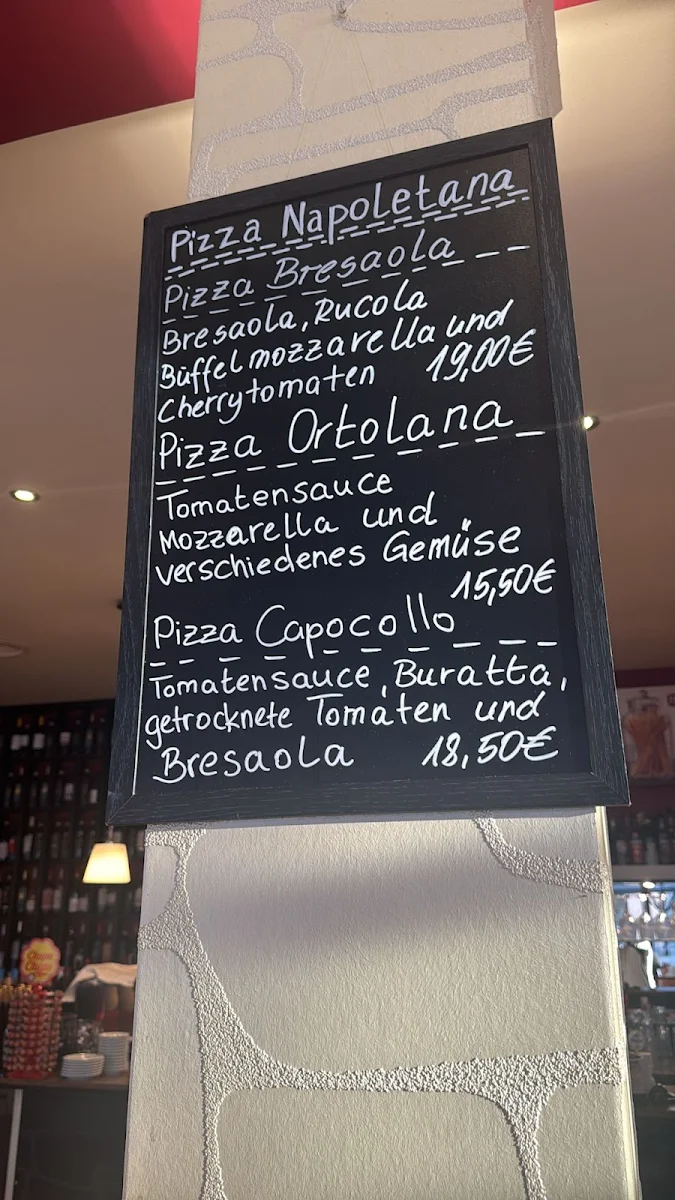 Pizza Napoletana
Pizza Bresaola
Bresaola, Rucola
Büffelmozzarella und
Cherrytomaten 19,00€
Pizza Ortolana
Tomatensauce
Mozzarella und
verschiedenes Gemüse
15,50€
Pizza Capocollo
Tomatensauce, Buratta,
getrocknete Tomaten und
Bresaola 18,50€